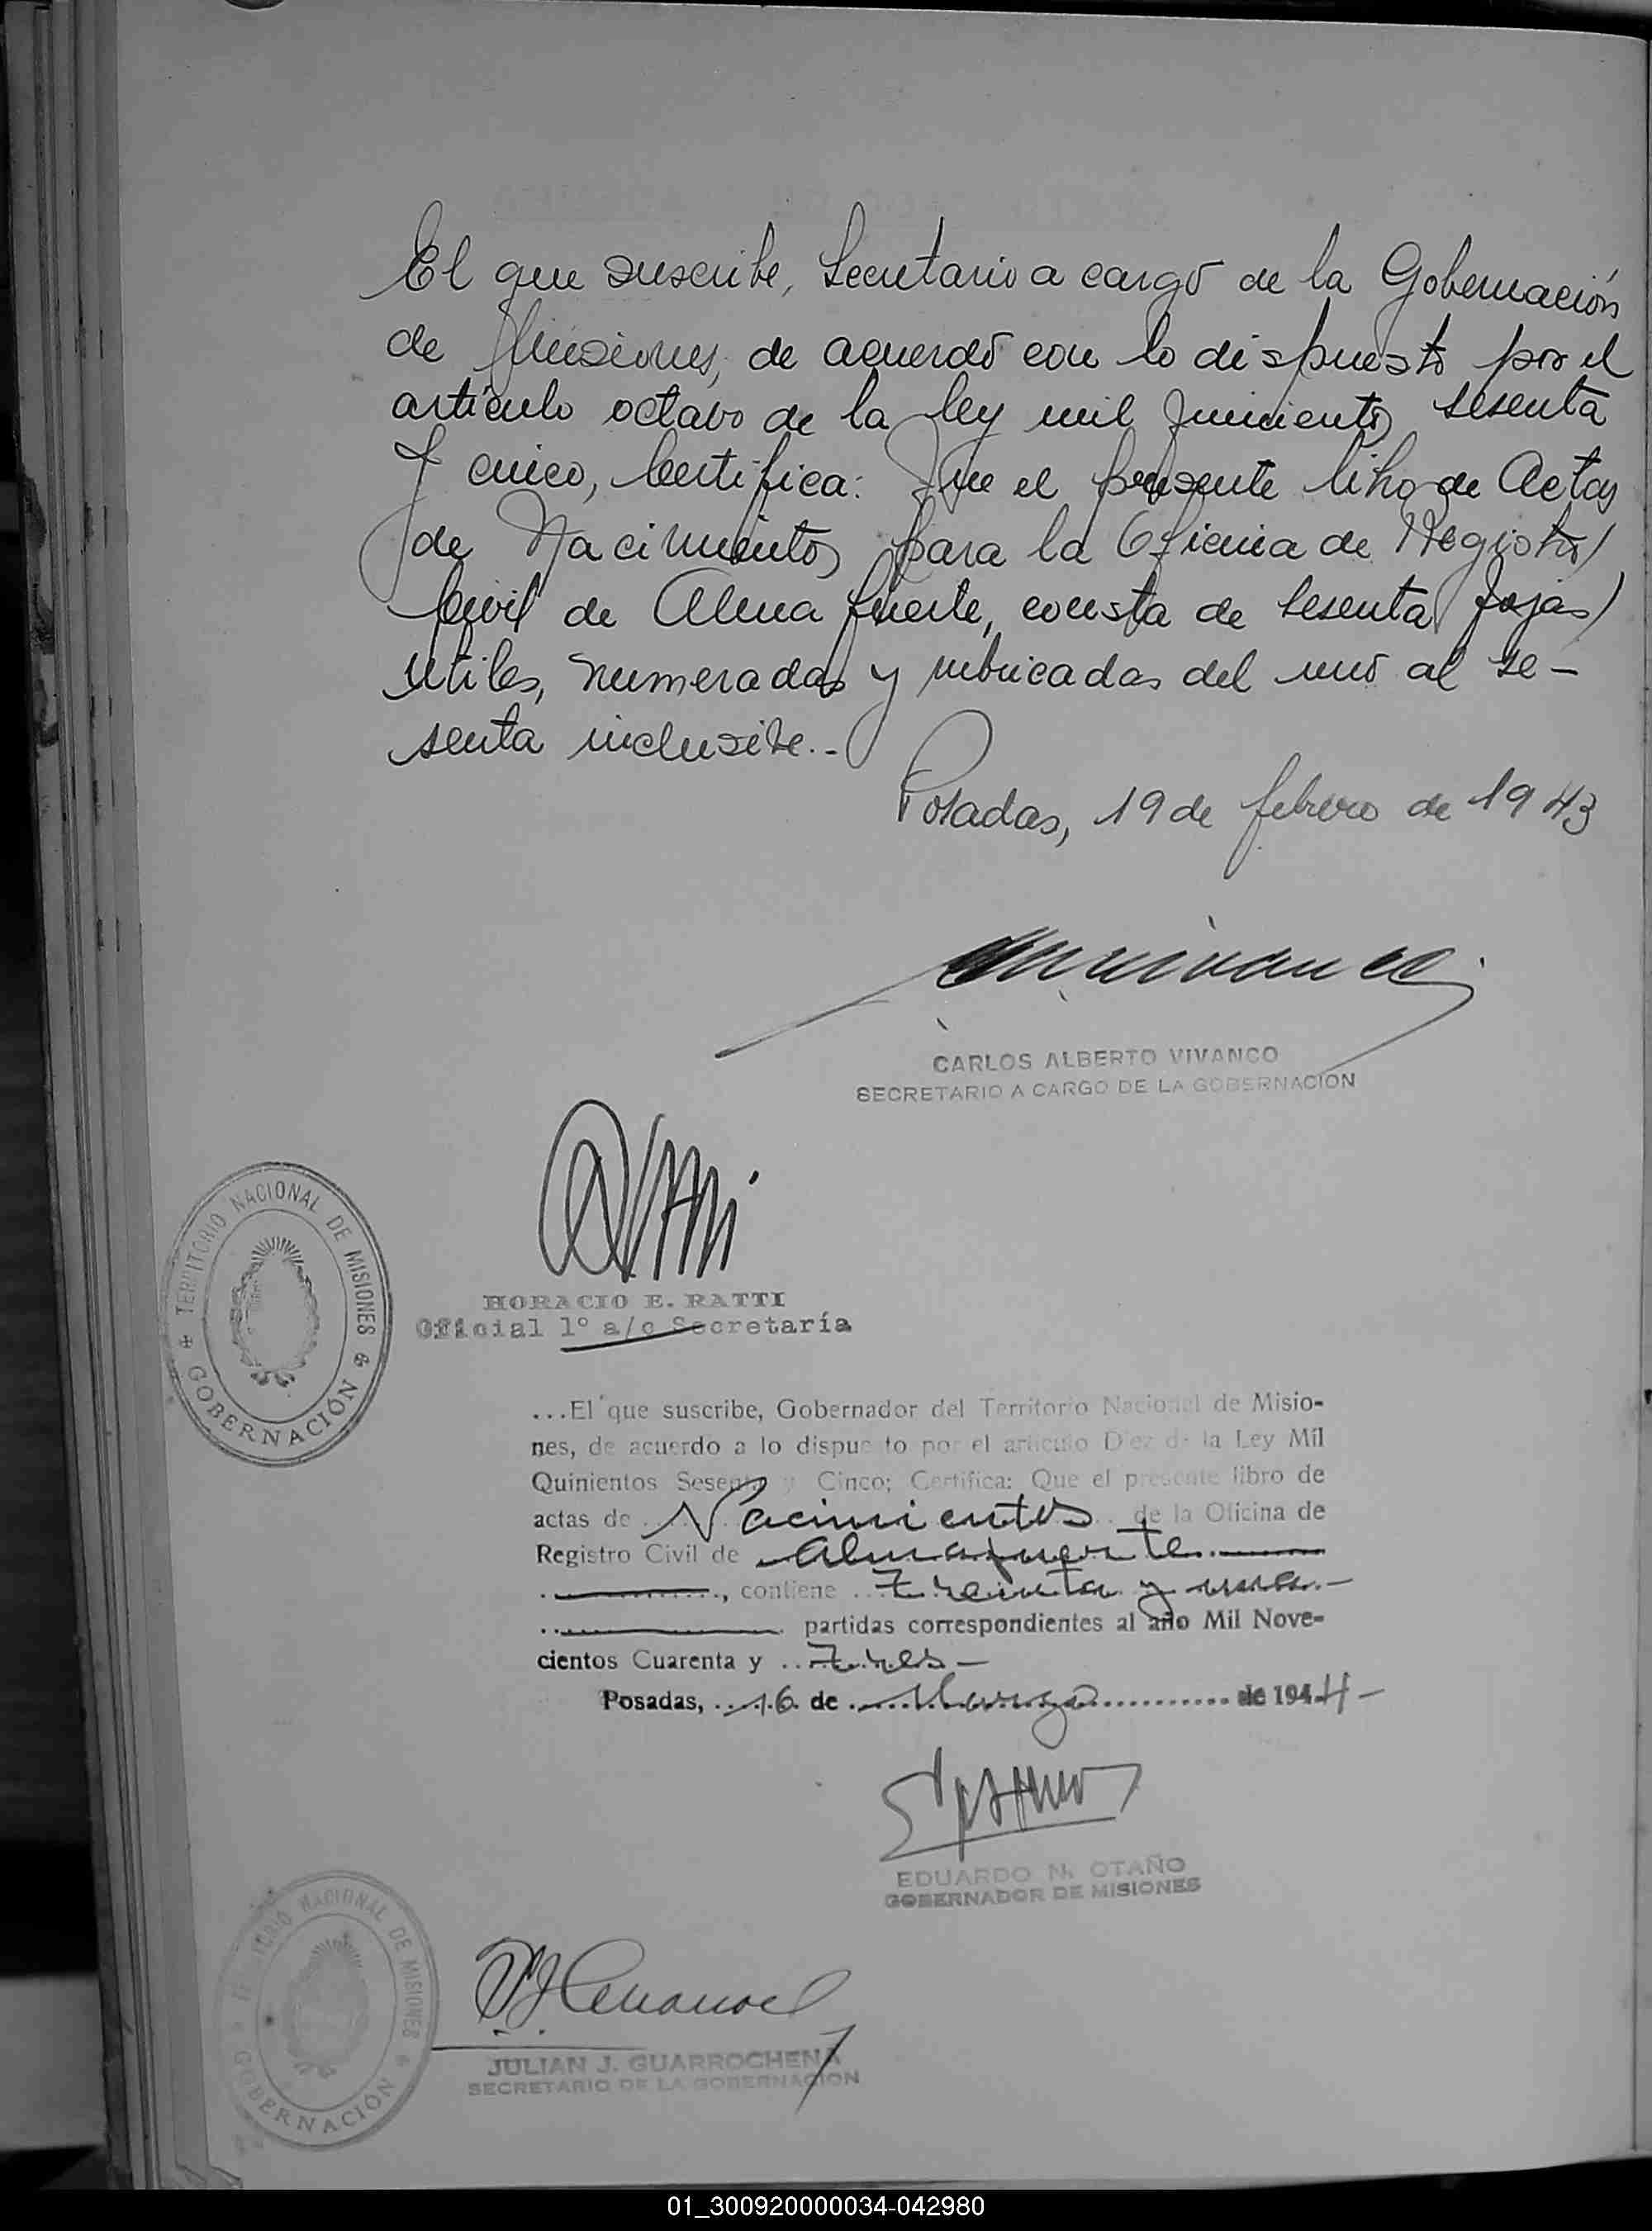 El que suscribe, Secretario a cargo de la Gobernación
de Misiones, de acuerdo con lo dispuesto por el
artículo octavo de la ley mil quinientos sesenta
y cinco, Certifica: Que el presente libro de Actas
de Nacimientos para la Oficina de Registro
Civil de Alma fuerte, consta de sesenta fojas
utiles, numeradas y rubricadas del uno al se-
senta inclusive.-
Posadas, 19 de febrero de 1943
CARLOS ALBERTO VIVANCO
SECRETARIO A CARGO DE LA GOBERNACIÓN
TERRITORIO NACIONAL DE MISIONES
GOBERNACIÓN
HORACIO E. RATTI
Oficial 1º a/c Secretaría
...El que suscribe, Gobernador del Territorio Nacional de Misio-
nes, de acuerdo a lo dispuesto por el artículo Diez de la Ley Mil
Quinientos Sesenta y Cinco; Certifica: Que el presente libro de
actas de Nacimientos de la Oficina de
Registro Civil de Almafuerte
, contiene treinta y una.-
partidas correspondientes al año Mil Nove-
cientos Cuarenta y Tres-
Posadas, 16 de Marzo de 1944-
EDUARDO N. OTAÑO
GOBERNADOR DE MISIONES
TERRITORIO NACIONAL DE MISIONES
GOBERNACIÓN
JULIAN J. GUARROCHENA
SECRETARIO DE LA GOBERNACION
01_300920000034-042980